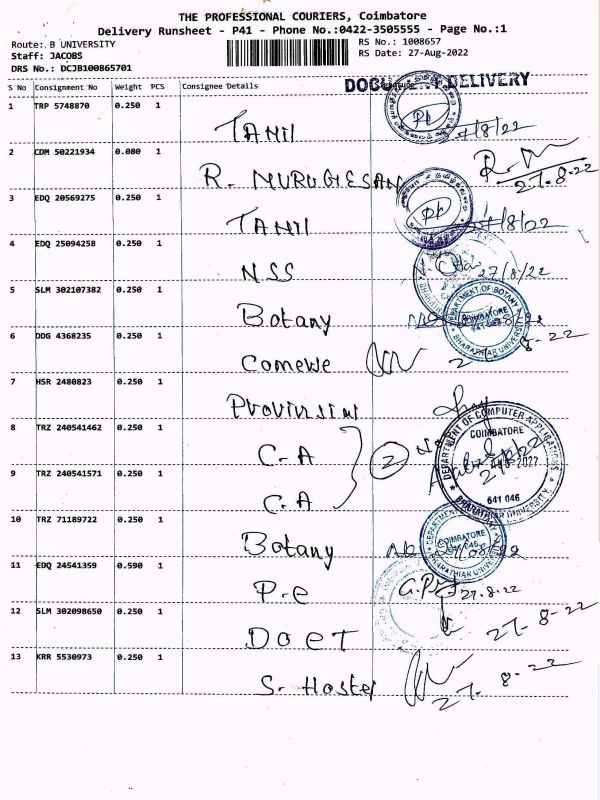 THE PROFESSIONAL COURIERS, Coimbatore
Delivery Runsheet - P41 - Phone No.:0422-3505555 - Page No.:1
Route: B UNIVERSITY
RS No.: 1008657
Staff: JACOBS
RS Date: 27-Aug-2022
DRS No.: DCJB100865701
DOCUMENT DELIVERY
S No Consignment No Weight PCS Consignee Details
1 TRP 5748870 0.250 1
TAMIL 27/8/22
2 CDM 50221934 0.080 1
R. MURUGESAN 27.8.22
3 EDQ 20569275 0.250 1
TAMIL 27/8/22
4 EDQ 25094258 0.250 1
NSS 27/8/22
5 SLM 302107382 0.250 1
Botany
DEPARTMENT OF BOTANY
COIMBATORE
BHARATHIAR UNIVERSITY
6 DDG 4368235 0.250 1
7 HSR 2480823 0.250 1
8 TRZ 240541462 0.250 1
C-A
2
DEPARTMENT OF COMPUTER APPLICATIONS
COIMBATORE
641 046
BHARATHIAR UNIVERSITY
9 TRZ 240541571 0.250 1
C.A
10 TRZ 71189722 0.250 1
Botany
COIMBATORE
11 EDQ 24541359 0.590 1
P.e 27.8.22
12 SLM 302098650 0.250 1
27-8-22
13 KRR 5530973 0.250 1
S. Hostel 27-8-22